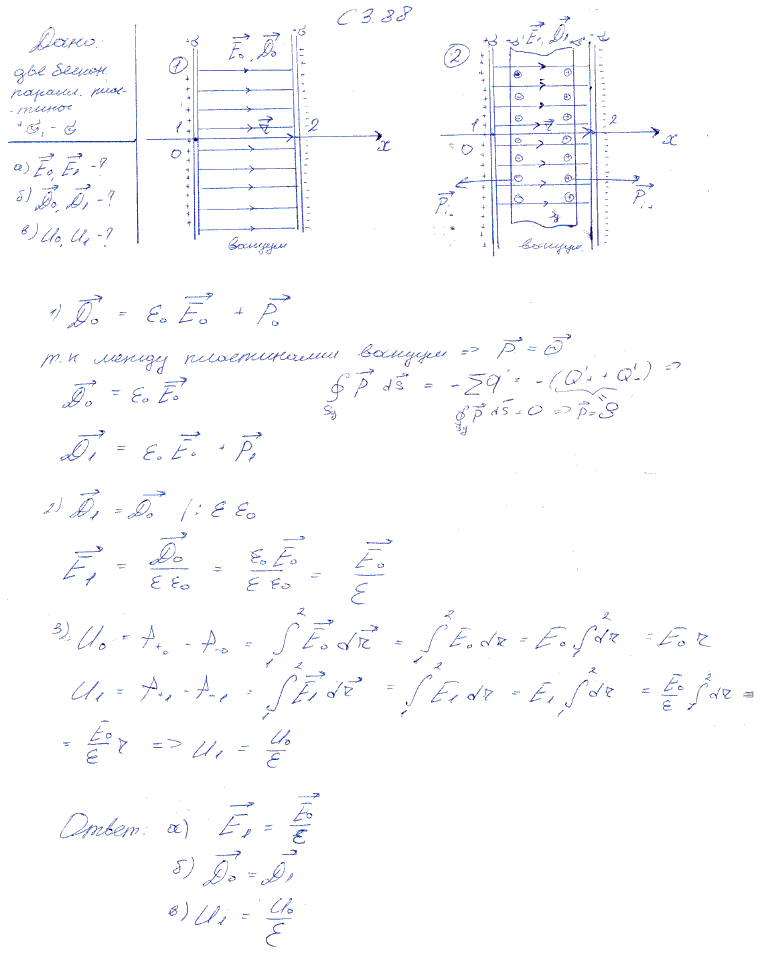 С 3.88
Дано:
две бескон.
паралл. плас-
тины
+σ, -σ
а) E₀, E₁ - ?
б) D₀, D₁ - ?
в) U₀, U₁ - ?
+σ E₀, D₀ -σ
1
1 r 2
0 x
вакуум
+σ -σ' E₁, D₁ +σ' -σ
2
1 r 2
0 x
P₁₋ P₁₊
Sg
вакуум
1) D₀ = ε₀ E₀ + P₀
т.к между пластинами вакуум => P = 0
D₀ = ε₀ E₀
∮ P dS = - Σq' = - (Q'₊ + Q'₋) =>
∮ P dS = 0 => P = 0
D₁ = ε₀ E₀ + P₁
2) D₁ = D₀ | : ε ε₀
E₁ = D₀/(ε ε₀) = ε₀ E₀/(ε ε₀) = E₀/ε
3) U₀ = φ₊₀ - φ₋₀ = ₁∫² E₀ dr = ₁∫² E₀ dr = E₀ ₁∫² dr = E₀ r
U₁ = φ₊₁ - φ₋₁ = ₁∫² E₁ dr = ₁∫² E₁ dr = E₁ ₁∫² dr = E₀/ε ₁∫² dr =
= E₀/ε r => U₁ = U₀/ε
Ответ: а) E₁ = E₀/ε
б) D₀ = D₁
в) U₁ = U₀/ε